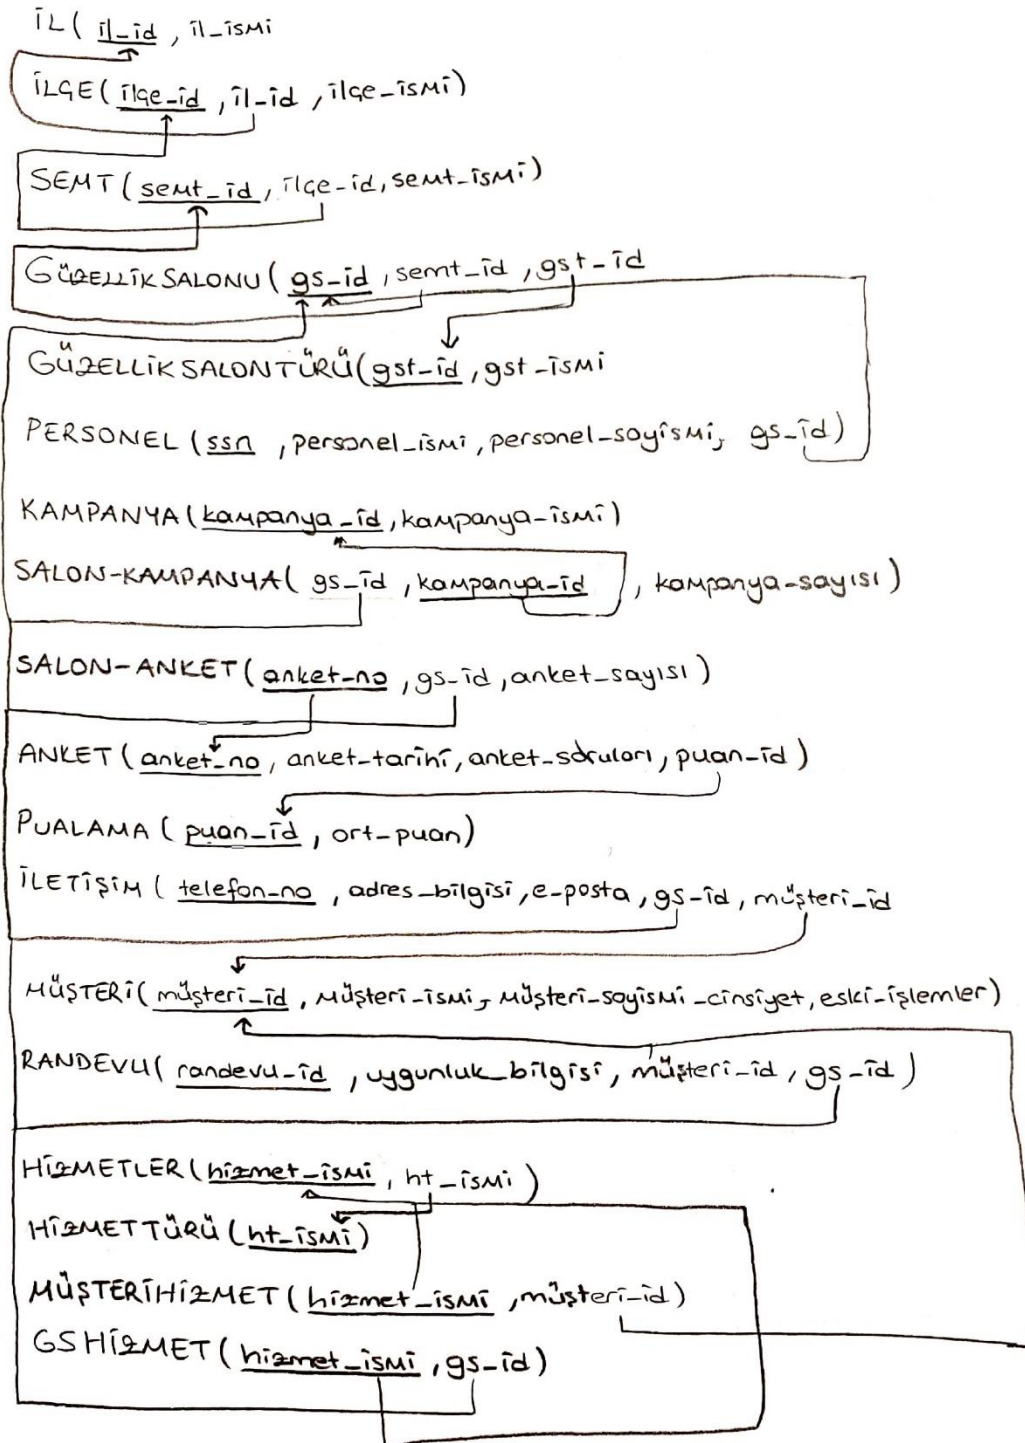 İL( il_id , il_ismi
İLÇE( ilçe_id , il_id , ilçe_ismi)
SEMT( semt_id, ilçe_id, semt_ismi)
GÜZELLİK SALONU( gs_id , semt_id , gst_id
GÜZELLİK SALON TÜRÜ(gst_id , gst_ismi
PERSONEL ( ssn , personel_ismi , personel_soyismi, gs_id)
KAMPANYA( kampanya_id, kampanya_ismi)
SALON-KAMPANYA( gs_id , kampanya_id , kampanya_sayısı)
SALON-ANKET( anket_no , gs_id , anket_sayısı)
ANKET( anket_no, anket_tarihi, anket_soruları, puan_id)
PUALAMA ( puan_id , ort_puan)
İLETİŞİM ( telefon_no , adres_bilgisi , e-posta, gs_id, müşteri_id
MÜŞTERİ( müşteri_id , müşteri_ismi, müşteri_soyismi _cinsiyet, eski_işlemler)
RANDEVU( randevu_id , uygunluk_bilgisi, müşteri_id , gs_id )
HİZMETLER( hizmet_ismi , ht_ismi )
HİZMET TÜRÜ( ht_ismi)
MÜŞTERİHİZMET( hizmet_ismi , müşteri_id)
GS HİZMET( hizmet_ismi , gs_id)